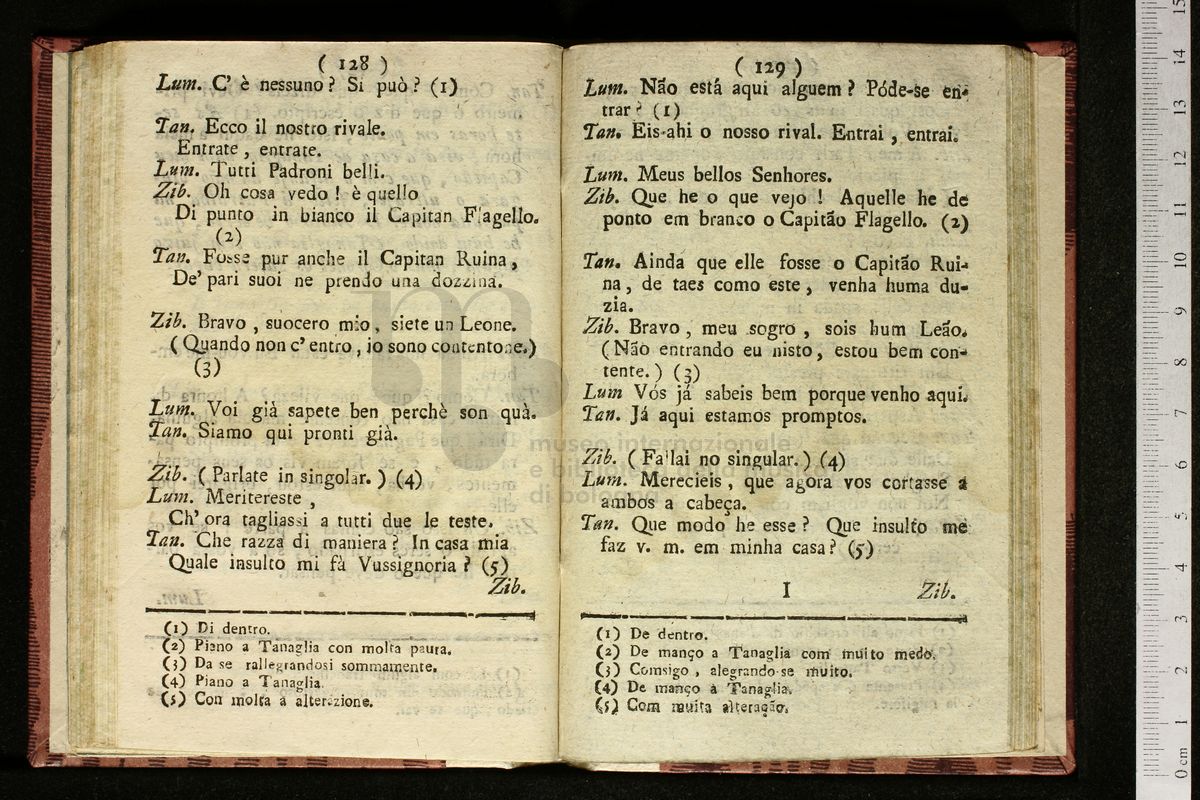 ( 128 )
Lum. C' è nessuno? Si può? (1)
Tan. Ecco il nostro rivale.
Entrate, entrate.
Lum. Tutti Padroni belli.
Zib. Oh cosa vedo! è quello
Di punto in bianco il Capitan Flagello.
(2)
Tan. Fosse pur anche il Capitan Ruina,
De' pari suoi ne prendo una dozzina.
Zib. Bravo, suocero mio, siete un Leone.
(Quando non c' entro, io sono contentone.)
(3)
Lum. Voi già sapete ben perchè son quà.
Tan. Siamo qui pronti già.
Zib. (Parlate in singolar.) (4)
Lum. Meritereste,
Ch' ora tagliassi a tutti due le teste.
Tan. Che razza di maniera? In casa mia
Quale insulto mi fà Vussignoria? (5)
Zib.
(1) Di dentro.
(2) Piano a Tanaglia con molta paura.
(3) Da se rallegrandosi sommamente.
(4) Piano a Tanaglia.
(5) Con molta a alterazione.
( 129 )
Lum. Não está aqui alguem? Póde-se en-
trar? (1)
Tan. Eis-ahi o nosso rival. Entrai, entrai.
Lum. Meus bellos Senhores.
Zib. Que he o que vejo! Aquelle he de
ponto em branco o Capitão Flagello. (2)
Tan. Ainda que elle fosse o Capitão Rui-
na, de taes como este, venha huma du-
zia.
Zib. Bravo, meu sogro, sois hum Leão.
(Não entrando eu nisto, estou bem con-
tente.) (3)
Lum Vós já sabeis bem porque venho aqui.
Tan. Já aqui estamos promptos.
Zib. (Fallai no singular.) (4)
Lum. Merecieis, que agora vos cortasse a
ambos a cabeça.
Tan. Que modo he esse? Que insulto me
faz v. m. em minha casa? (5)
I Zib.
(1) De dentro.
(2) De manço a Tanaglia com muito medo.
(3) Comsigo, alegrando-se muito.
(4) De manço à Tanaglia.
(5) Com muita alteração.
museo internazionale
e biblioteca della musica
di bologna
0 cm 1 2 3 4 5 6 7 8 9 10 11 12 13 14 15